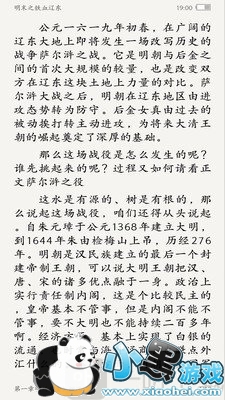 明末之铁血辽东
19:00
公元一六一九年初春，在广阔的
辽东大地上即将发生一场改写历史的
战争萨尔浒之战。它是明朝与后金之
间的首次大规模的较量，也是改变双
方在辽东这块土地上力量的对比。萨
尔浒大战之后，明朝在辽东地区由进
攻态势转为防守。后金女真由过去的
被动挨打转主动进攻，为将来大清王
朝的崛起奠定了深厚的基础。
那么这场战役是怎么发生的呢？
谁先挑起来的呢？过程又如何请看正
文萨尔浒之役
这水是有源的、树是有根的，那
么说起这场战役，咱们还得从头说
起。自朱元璋于公元1368年建立大明，
到1644年朱由检梅山上吊，历经276
年。明朝是汉民族建立的最后一个封
建帝制王朝，可以说大明王朝是把汉
、唐、宋的诸多优点融于一身。政治上
实行责任制内阁，这是个比较民主的
，皇帝基本不管事，但是内阁不能不
管事，要不大明也不能持续二百多年
啊。经济
基本上实现了白银的
流通
与海
外汇什
第一章
小黑游戏
www.xiaohei.com